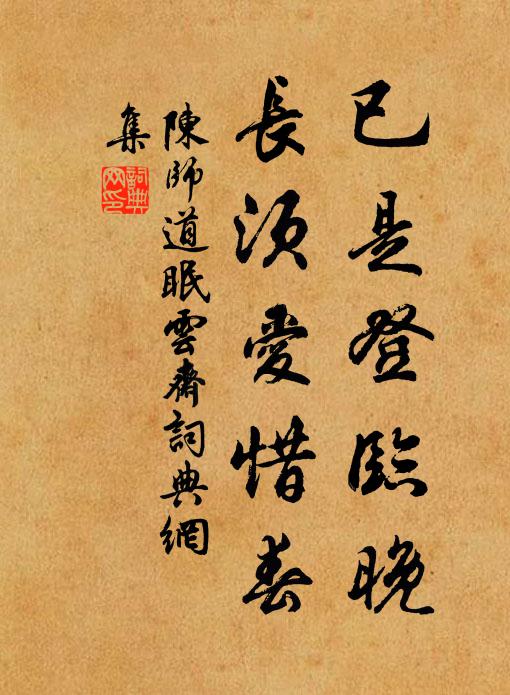 已是登臨晚
長須愛惜春
陳師道眠雲齋詞典網
集
詞典
网印